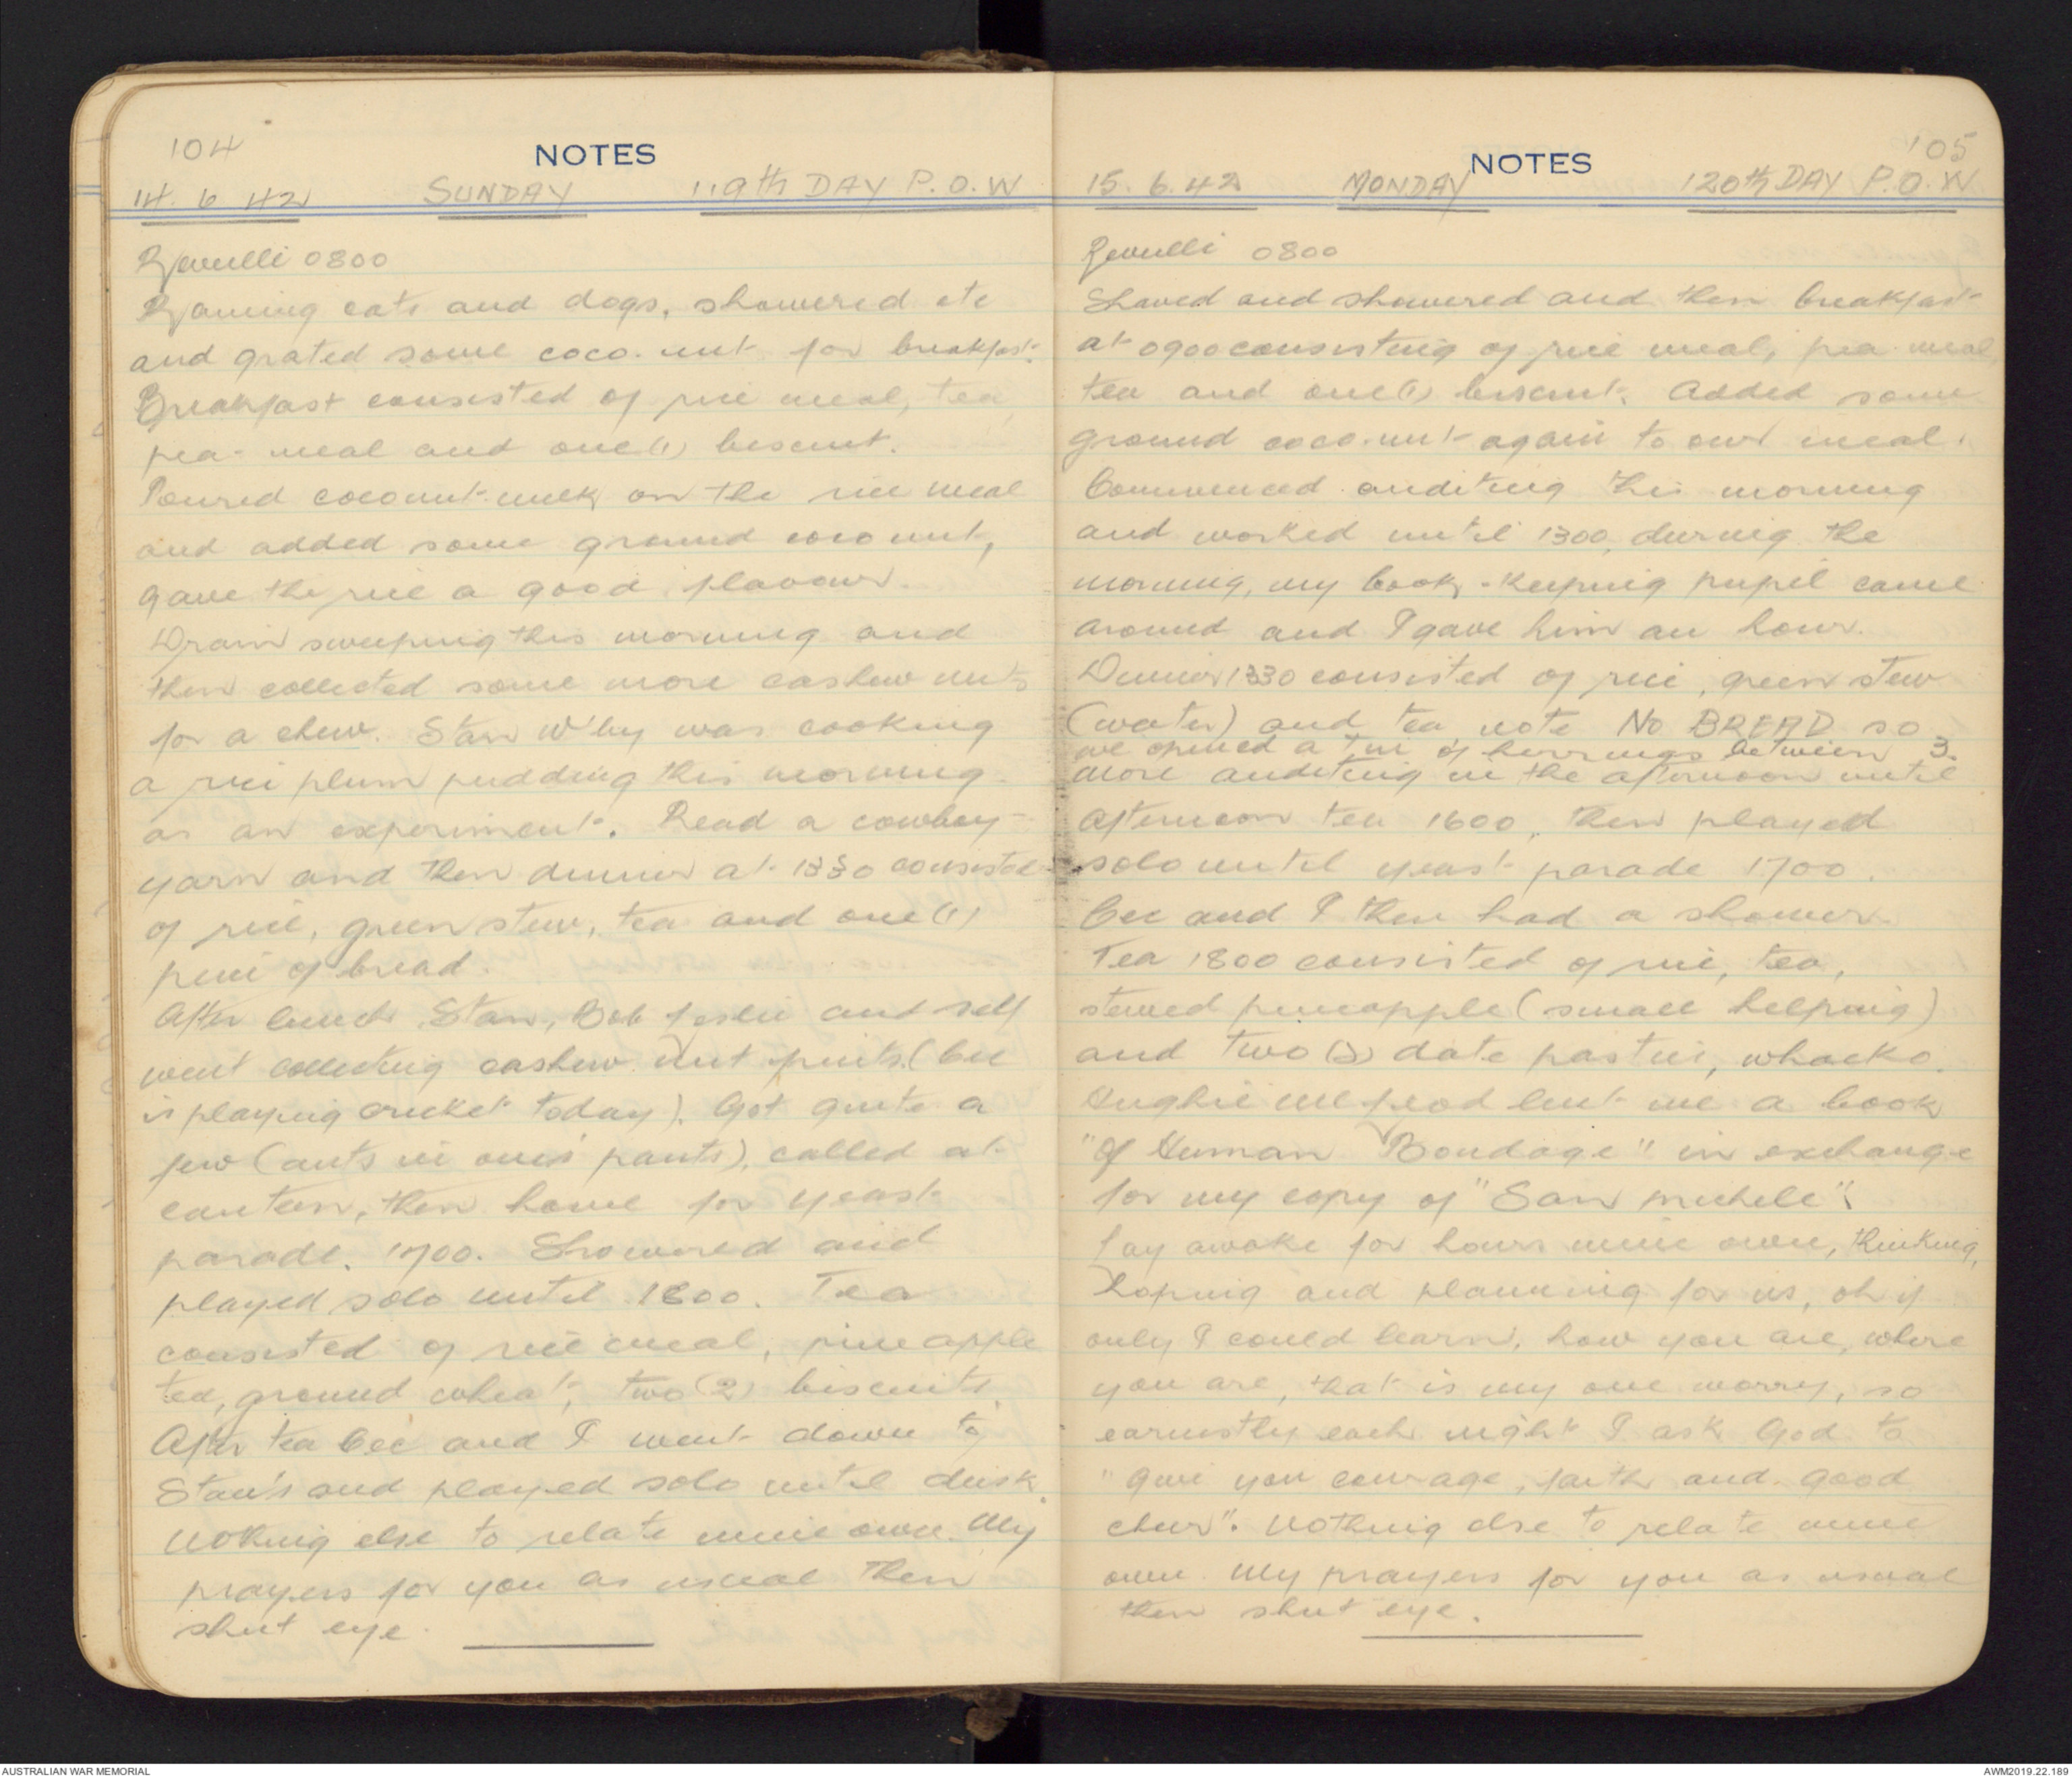 104
NOTES
14. 6 42 SUNDAY 119th DAY P.O.W
Revelli 0800
Raining cats and dogs, showered etc
and grated some coco.nut for breakfast.
Breakfast consisted of rice meal, tea,
pea-meal and one (1) biscuit.
Poured coconut-milk on the rice meal
and added some ground coconut,
gave the rice a good flavour.
Drain sweeping this morning and
then collected some more cashew nuts
for a chew. Stan W'by was cooking
a rice plum pudding this morning
as an experiment. Read a cowboy
yarn and then dinner at 1330 consisted
of rice, green stew, tea and one (1)
piece of bread.
After lunch, Stan, Bob Leslie and self
went collecting cashew nut fruits. (Cec
is playing cricket today). Got quite a
few (ants in one's pants), called at
canteen, then home for yeast
parade. 1700. Showered and
played solo until 1800. Tea
consisted of rice meal, pineapple
tea, ground wheat, two (2) biscuits.
After tea Cec and I went down to
Stan's and played solo until dusk.
Nothing else to relate mine own. My
prayers for you as usual then
shut eye.
105
NOTES
15. 6. 42 MONDAY 120th DAY P.O.W
Revelli 0800
Shaved and showered and then breakfast
at 0900 consisting of rice meal, pea-meal,
tea and one (1) biscuit. Added some
ground coco.nut again to our meal.
Commenced auditing this morning
and worked until 1300, during the
morning, my book-keeping pupil came
around and I gave him an hour.
Dinner 1330 consisted of rice, green stew
(water) and tea note NO BREAD so
we opened a tin of herrings between 3.
More auditing in the afternoon until
afternoon tea 1600, then played
solo until yeast parade 1700.
Cec and I then had a shower.
Tea 1800 consisted of rice, tea,
stewed pineapple (small helping)
and two (2) date pasties, whacko.
Hughie lent me a book
"Of Human Bondage" in exchange
for my copy of "San Michele".
Lay awake for hours mine own, thinking,
hoping and planning for us, oh if
only I could learn, how you are, where
you are, that is my one worry, so
earnestly each night I ask God to
"give you courage, faith and good
cheer". Nothing else to relate mine
own. My prayers for you as usual
then shut eye.
AUSTRALIAN WAR MEMORIAL
AWM2019.22.189